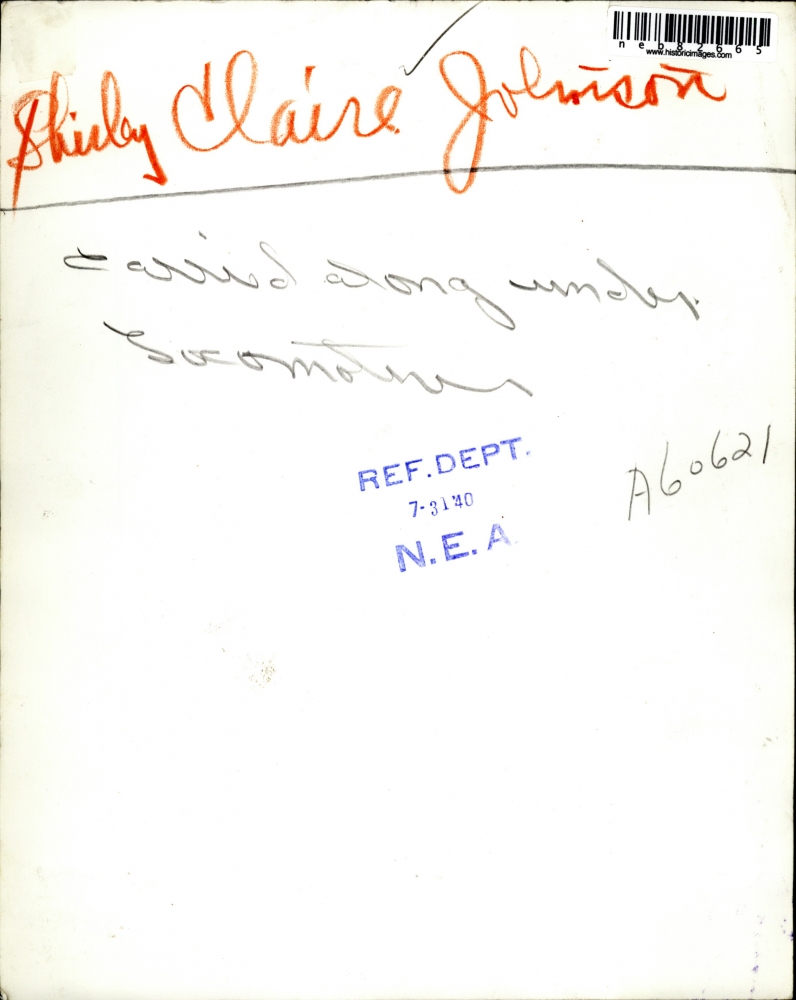 neb82665
www.historicimages.com
Shirley Claire Johnson
carried along under
Locomotive
REF. DEPT.
7-31'40
N. E. A.
A60621